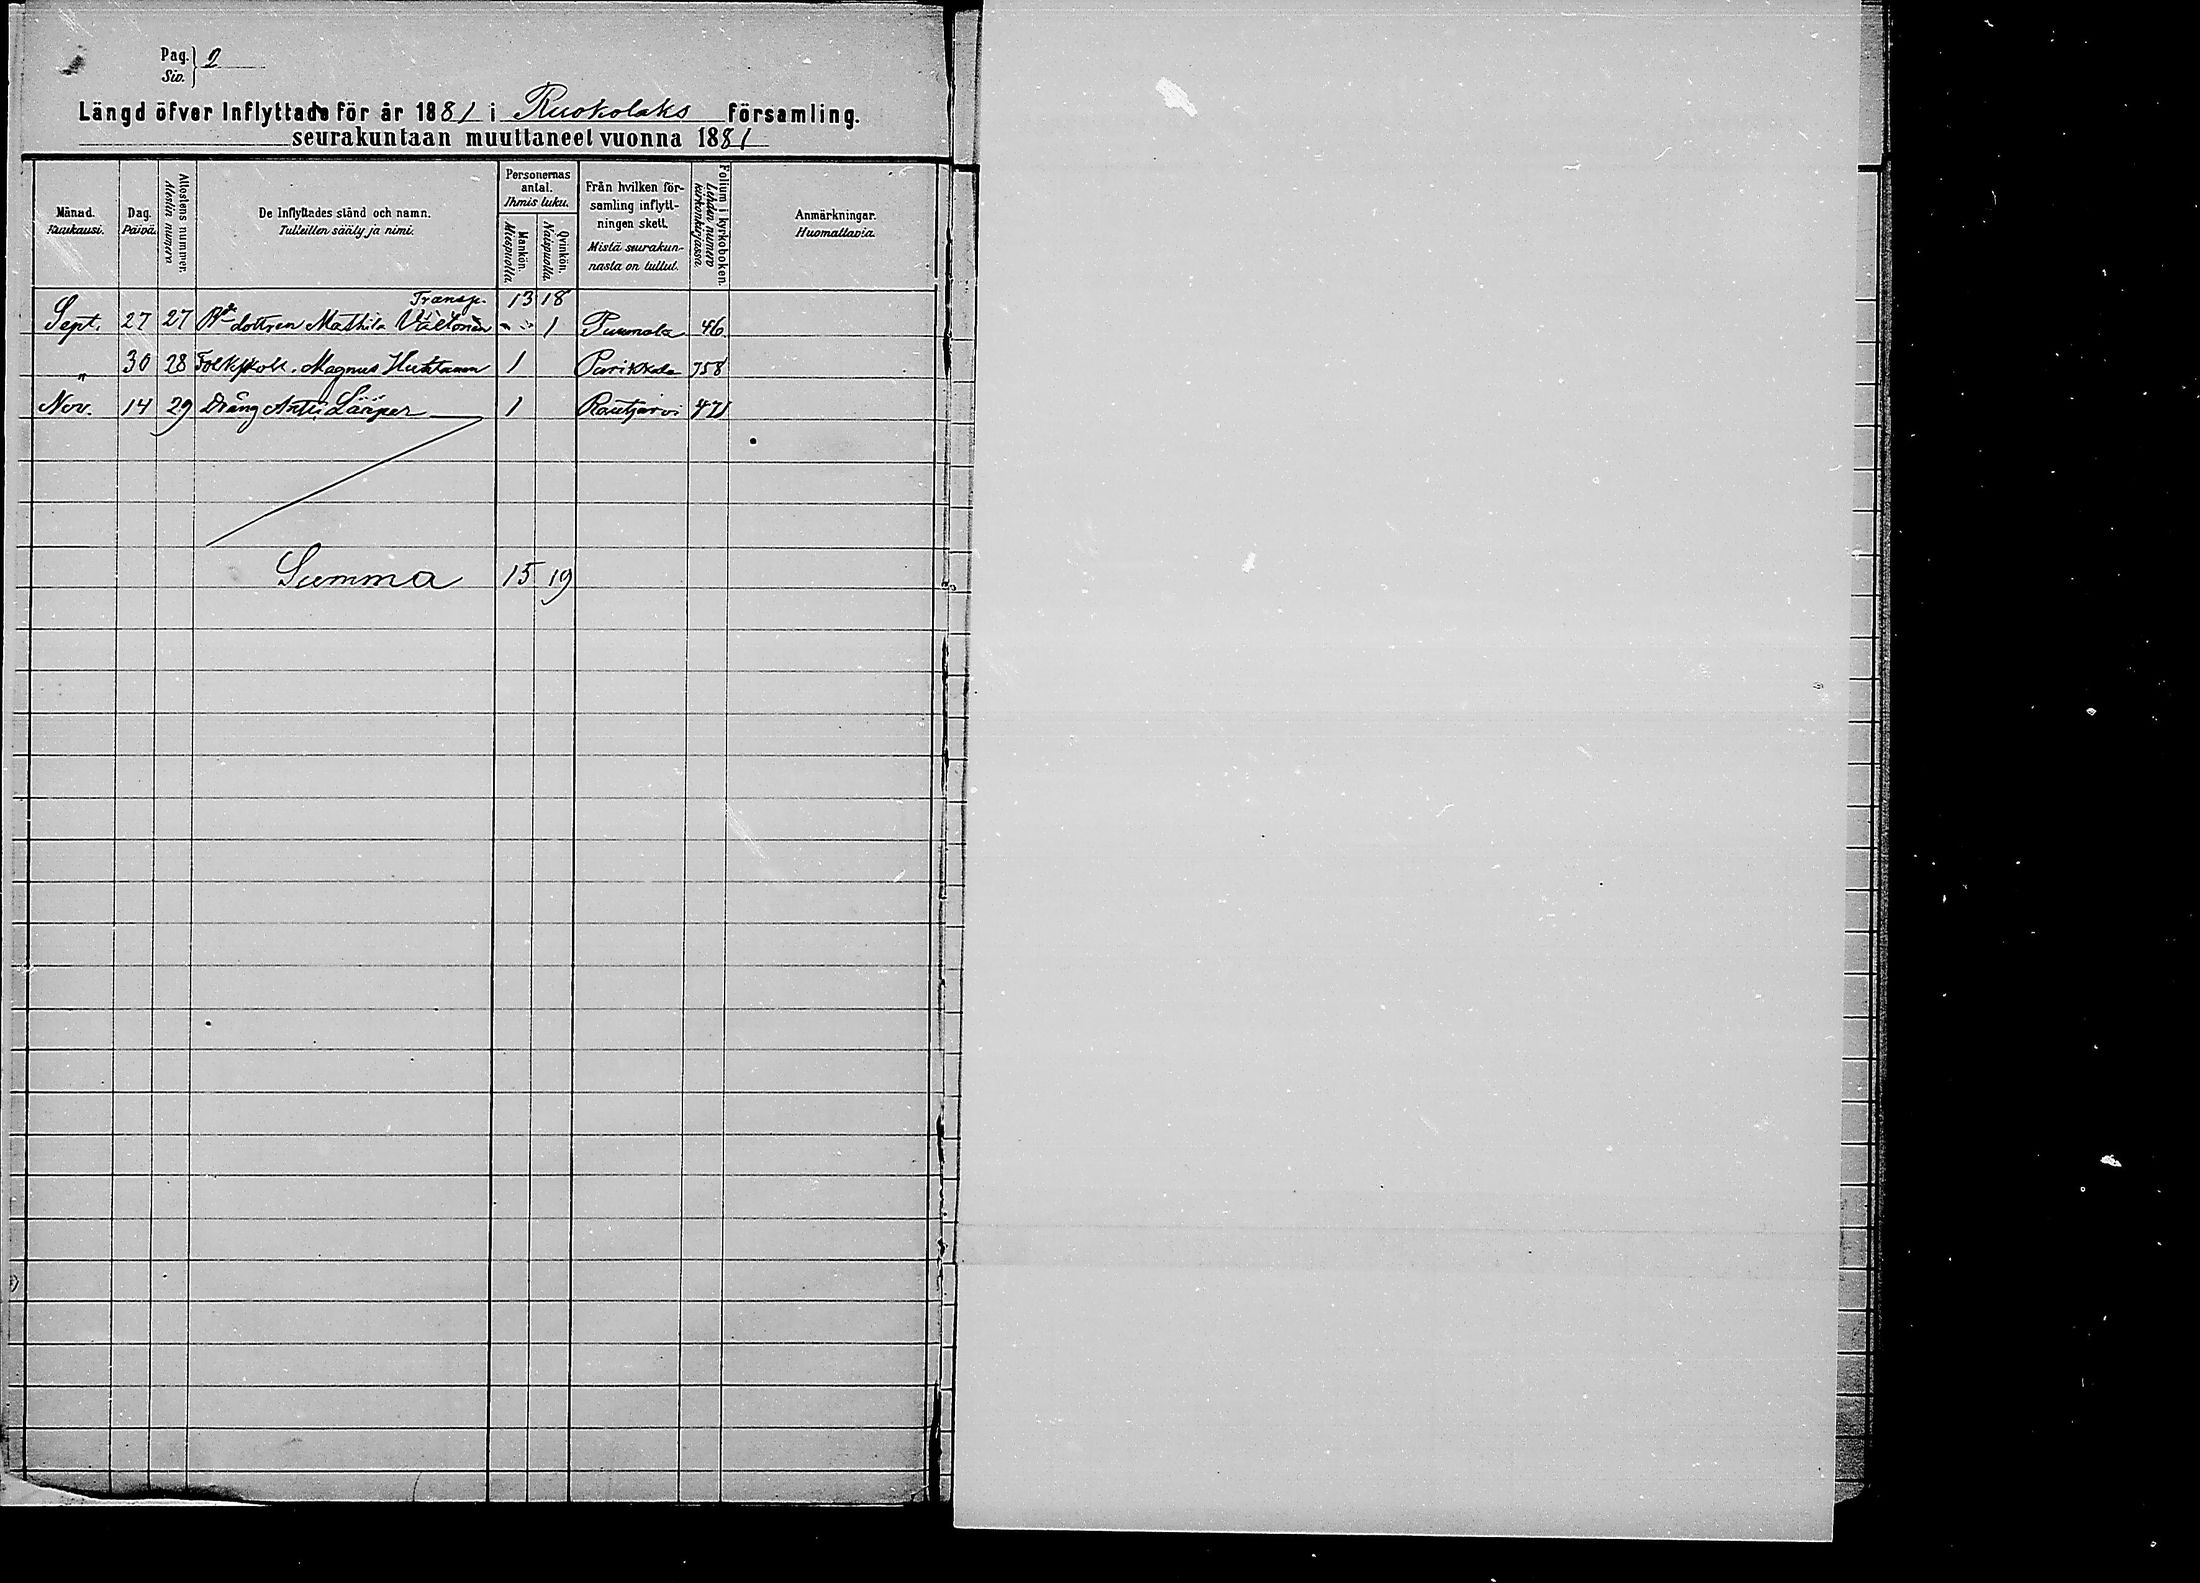 Pag. 2
Siv.
Längd öfver Inflyttade för år 1881 i Ruokolaks församling.
seurakuntaan muuttaneet vuonna 1881
Månad. Kuukausi.
Dag. Päivä.
Attestens nummer. Atestin numero.
De Inflyttades stånd och namn. Tulleitten sääty ja nimi.
Personernas antal. Ihmis luku.
Mankön. Miespuolia.
Qvinkön. Naispuolia.
Från hvilken församling inflyttningen skett. Mistä seurakunnasta on tullut.
Folium i kyrkoboken. Lehden numero kirkonkirjassa.
Anmärkningar. Huomattavia.
Transp. 13 18
Sept. 27 27 Bdedottren Mathila 1 Puumala 46
" 30 28 Folkskoll. Magnus Huhtanen 1 Parikkala 758
Nov. 14 29 Dräng Anti 1 Rautjärvi 471
Summa 15 19